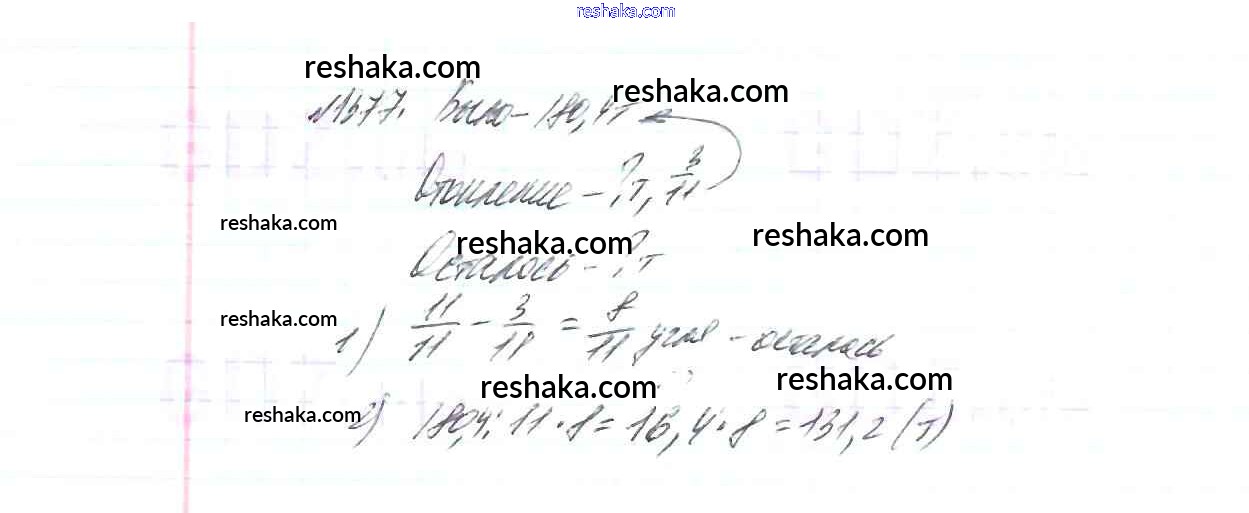 reshaka.com
reshaka.com
reshaka.com
№1377. Было - 180,4т
Отопление - ?т, 3/11
reshaka.com
reshaka.com
reshaka.com
Осталось - ?т
reshaka.com
1) 11/11 - 3/11 = 8/11 угля - осталось
reshaka.com
reshaka.com
reshaka.com
2) 180,4 : 11 · 8 = 16,4 · 8 = 131,2 (т)